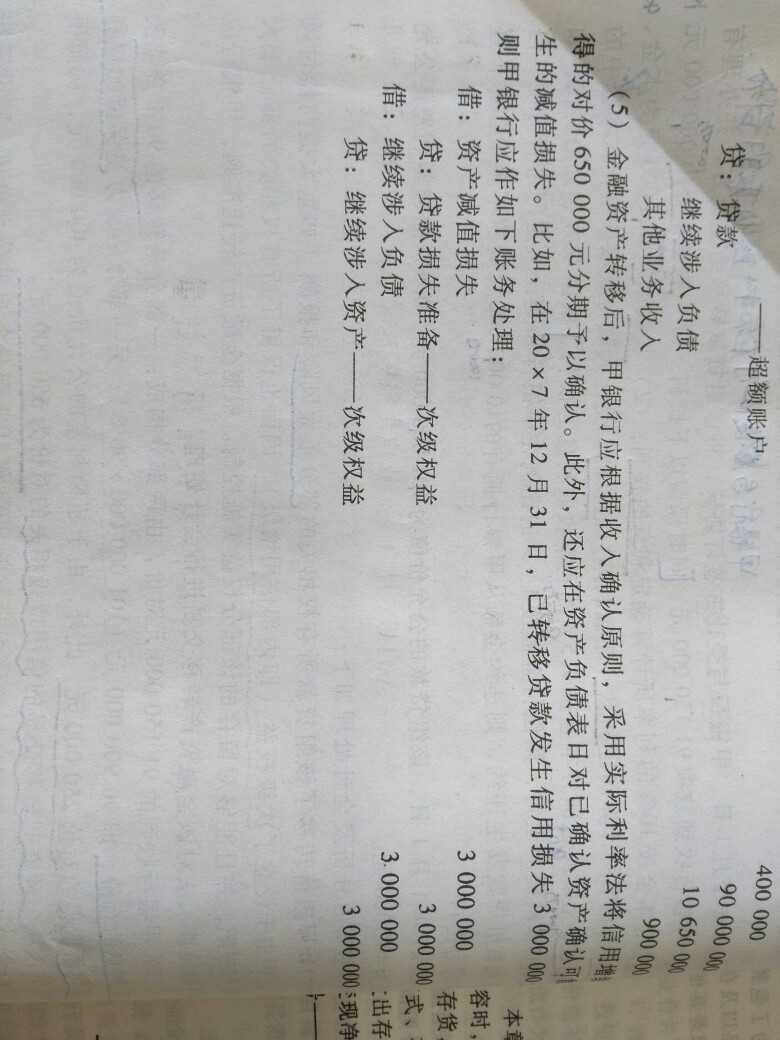 ——超额账户 400 000
贷：贷款 90 000 000
继续涉入负债 10 650 000
其他业务收入 900 000
（5）金融资产转移后，甲银行应根据收入确认原则，采用实际利率法将信用增
得的对价 650 000 元分期予以确认。此外，还应在资产负债表日对已确认资产确认可
生的减值损失。比如，在 20×7 年 12 月 31 日，已转移贷款发生信用损失 3 000 000
则甲银行应作如下账务处理：
借：资产减值损失 3 000 000
贷：贷款损失准备——次级权益 3 000 000
借：继续涉入负债 3 000 000
贷：继续涉入资产——次级权益 3 000 000
本章
容时，
存货，
式、
：出存
现净